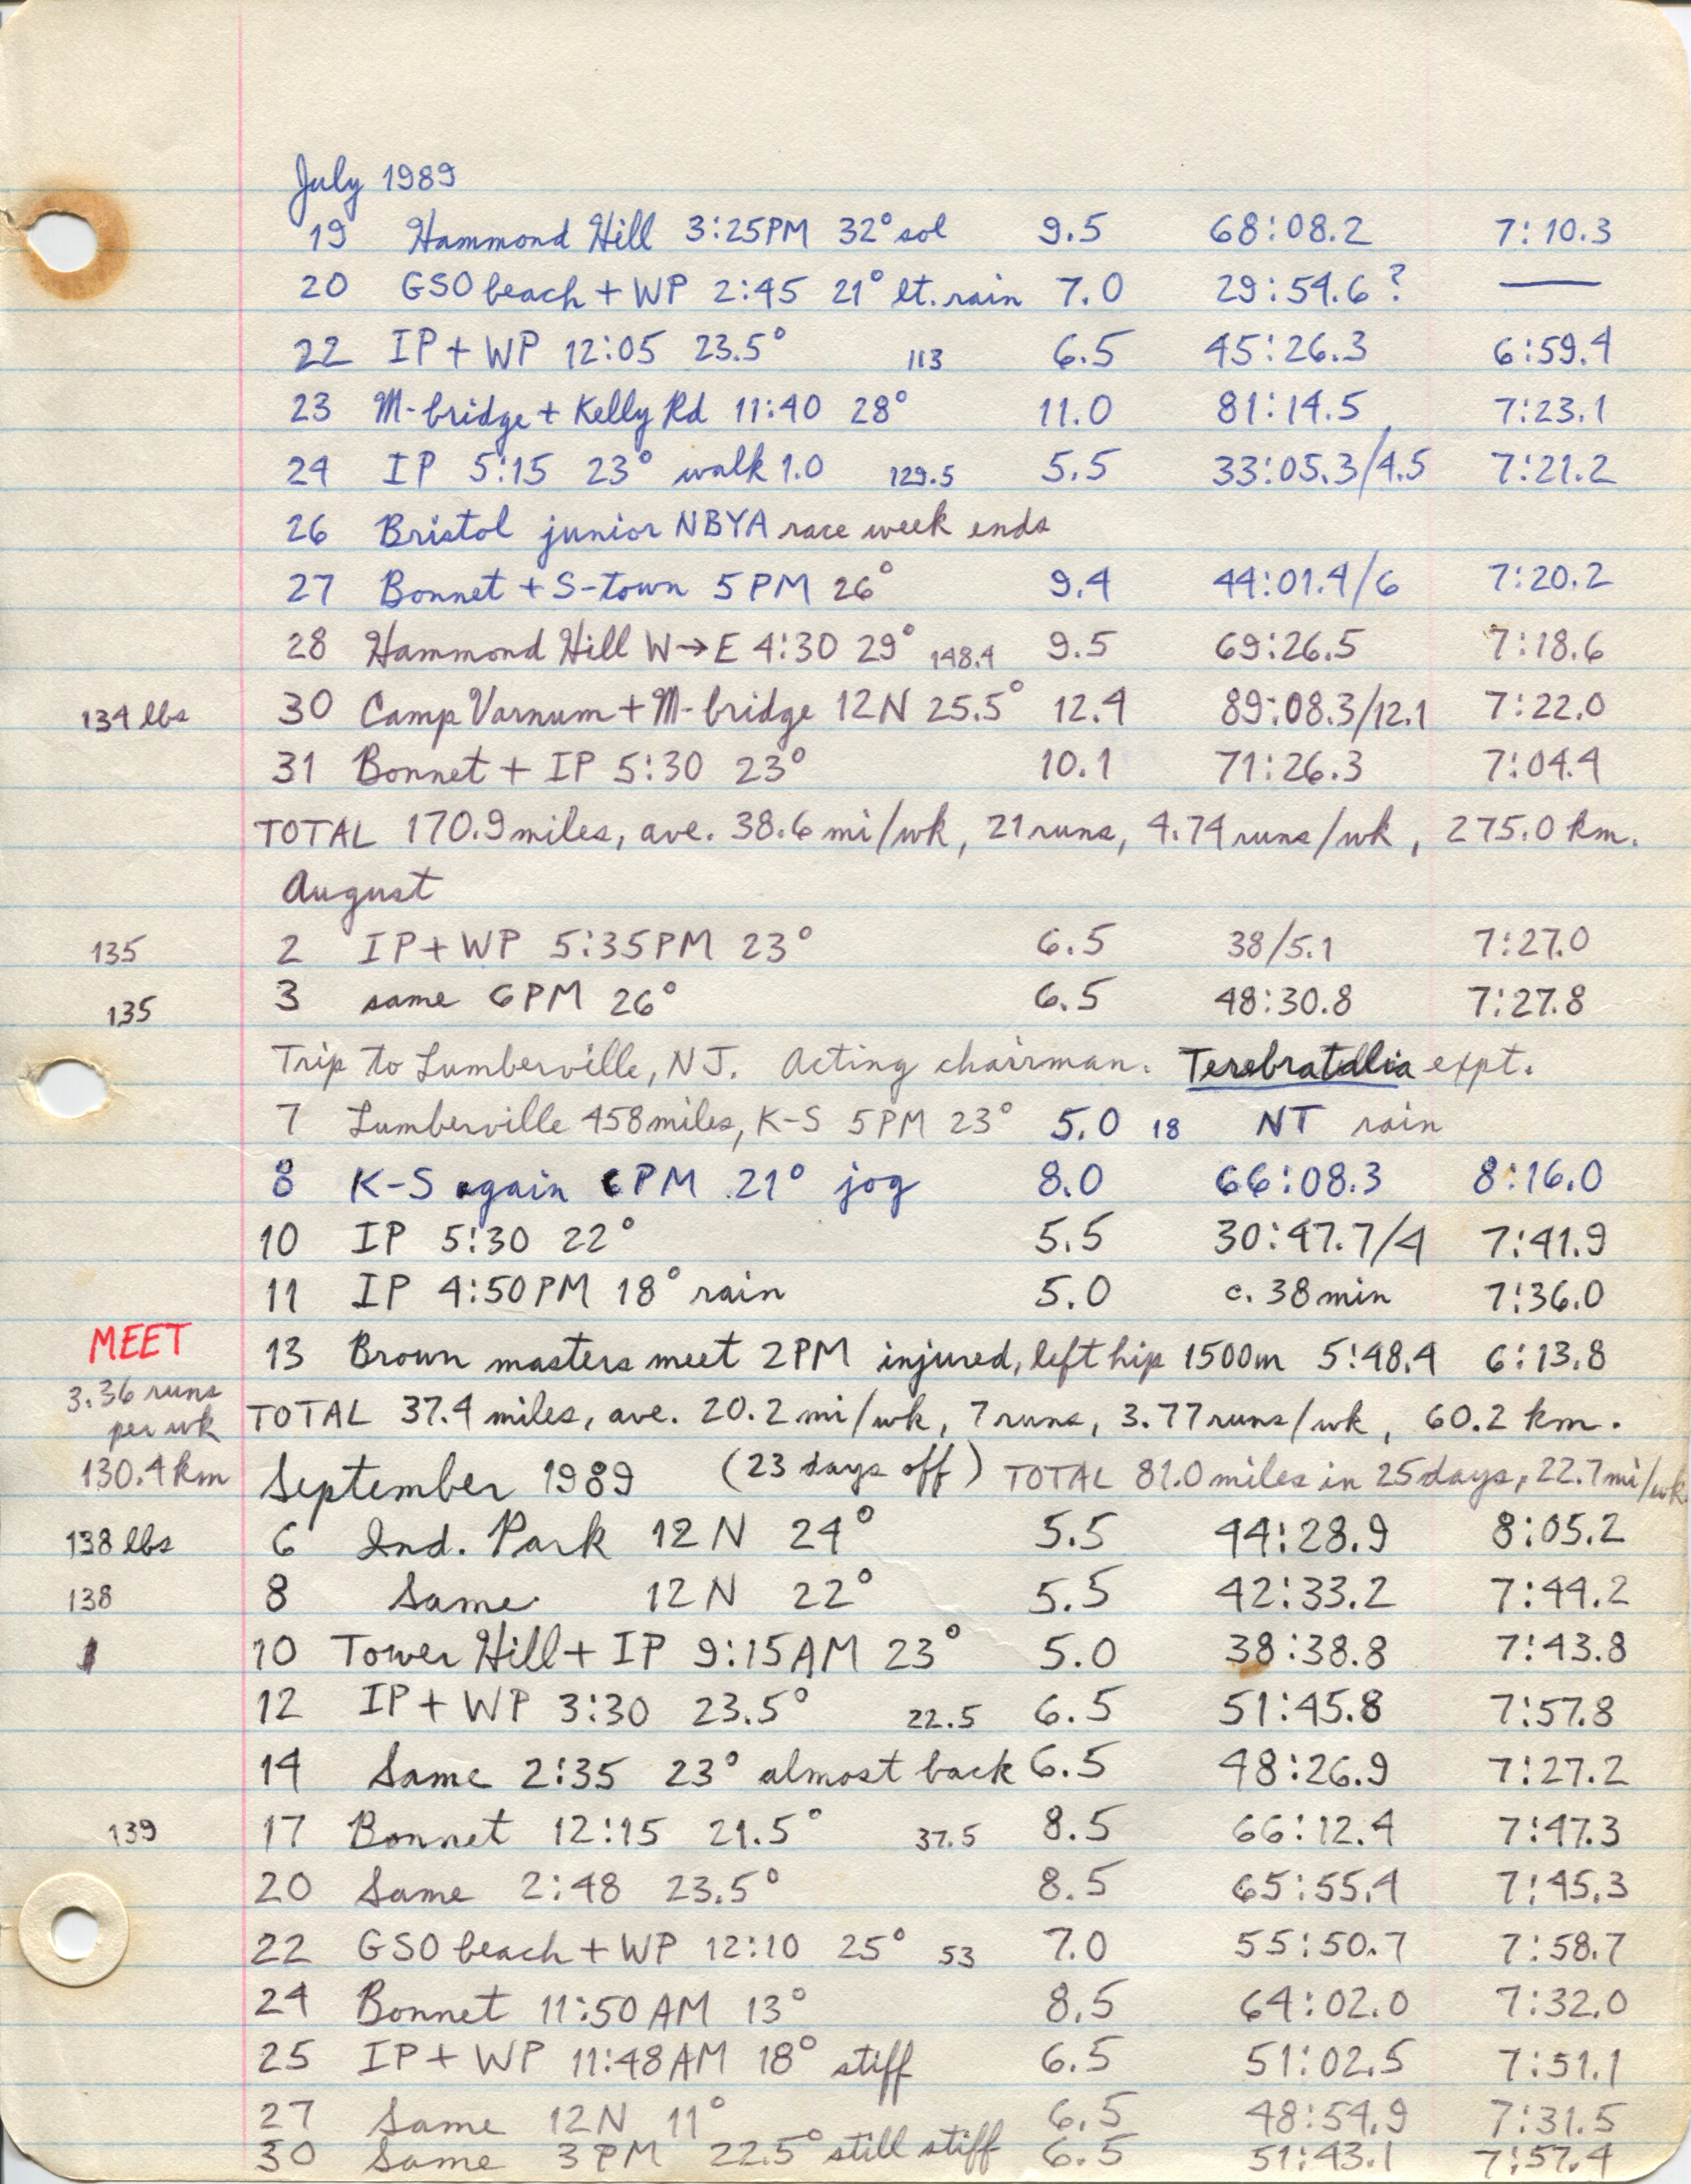 July 1989
19 Hammond Hill 3:25PM 32° sol 9.5 68:08.2 7:10.3
20 GSO beach + WP 2:45 21° lt. rain 7.0 29:54.6? —
22 IP + WP 12:05 23.5° 113 6.5 45:26.3 6:59.4
23 M-bridge + Kelly Rd 11:40 28° 11.0 81:14.5 7:23.1
24 IP 5:15 23° walk 1.0 129.5 5.5 33:05.3/4.5 7:21.2
26 Bristol junior NBYA race week ends
27 Bonnet + S-town 5PM 26° 9.4 44:01.4/6 7:20.2
28 Hammond Hill W→E 4:30 29° 148.4 9.5 69:26.5 7:18.6
134 lbs 30 Camp Varnum + M-bridge 12N 25.5° 12.4 89:08.3/12.1 7:22.0
31 Bonnet + IP 5:30 23° 10.1 71:26.3 7:04.4
TOTAL 170.9 miles, ave. 38.6 mi/wk, 21 runs, 4.74 runs/wk, 275.0 km.
August
135 2 IP + WP 5:35PM 23° 6.5 38/5.1 7:27.0
135 3 same 6PM 26° 6.5 48:30.8 7:27.8
Trip to Lumberville, NJ. Acting chairman. Terebratalia expt.
7 Lumberville 458 miles, K-S 5PM 23° 5.0 18 NT rain
8 K-S again 6PM 21° jog 8.0 66:08.3 8:16.0
10 IP 5:30 22° 5.5 30:47.7/4 7:41.9
11 IP 4:50PM 18° rain 5.0 c. 38 min 7:36.0
MEET 13 Brown masters meet 2PM injured, left hip 1500m 5:48.4 6:13.8
3.36 runs per wk TOTAL 37.4 miles, ave. 20.2 mi/wk, 7 runs, 3.77 runs/wk, 60.2 km.
130.4 km September 1989 (23 days off) TOTAL 81.0 miles in 25 days, 22.7 mi/wk
138 lbs 6 Ind. Park 12N 24° 5.5 44:28.9 8:05.2
138 8 Same 12N 22° 5.5 42:33.2 7:44.2
10 Tower Hill + IP 9:15AM 23° 5.0 38:38.8 7:43.8
12 IP + WP 3:30 23.5° 22.5 6.5 51:45.8 7:57.8
14 Same 2:35 23° almost back 6.5 48:26.9 7:27.2
139 17 Bonnet 12:15 21.5° 37.5 8.5 66:12.4 7:47.3
20 Same 2:48 23.5° 8.5 65:55.4 7:45.3
22 GSO beach + WP 12:10 25° 53 7.0 55:50.7 7:58.7
24 Bonnet 11:50AM 13° 8.5 64:02.0 7:32.0
25 IP + WP 11:48AM 18° stiff 6.5 51:02.5 7:51.1
27 Same 12N 11° 6.5 48:54.9 7:31.5
30 Same 3PM 22.5° still stiff 6.5 51:43.1 7:57.4